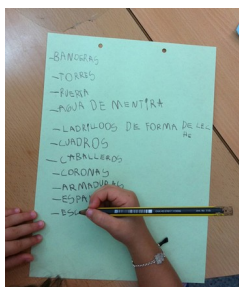 -BANDERAS
-TORRES
-PUERTA
-AGUA DE MENTIRA
-LADRILLOS DE FORMA DE
-CUADROS
-CABALLEROS
-CORONAS
-ARMADURAS
-ESPA
-ESC